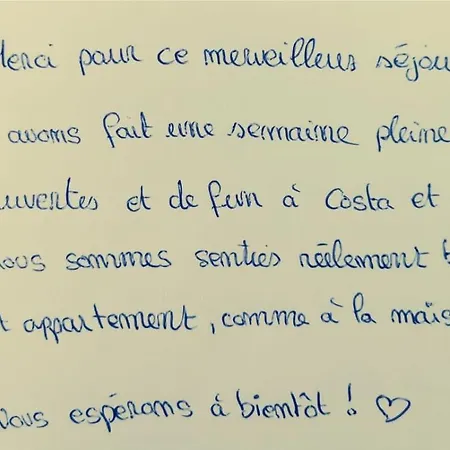 Merci pour ce merveilleus séjou
avons fait une semaine pleine
uvertes et de fun à Costa et
nous sommes senties réélement b
t appartement, comme à la mais
Nous espérons à bientôt ! ♡